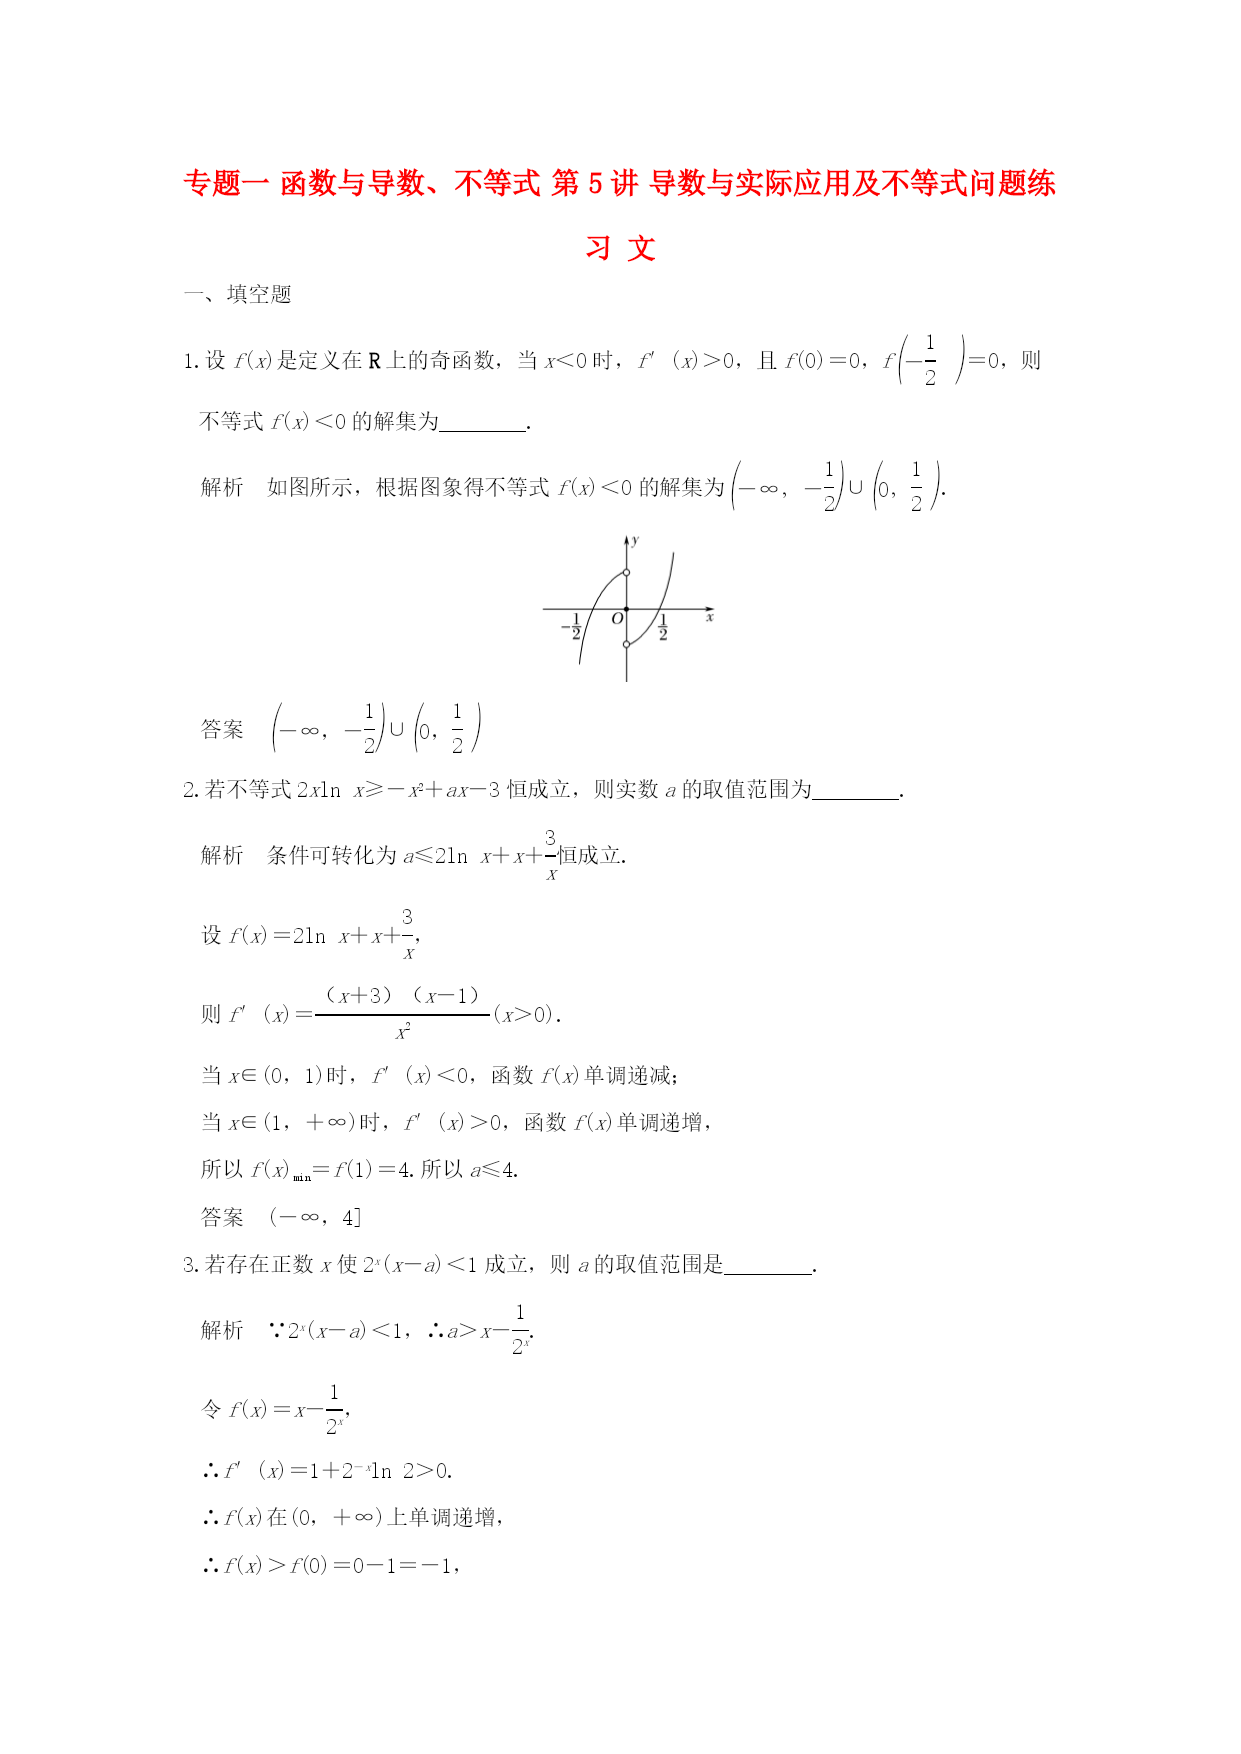 专题一 函数与导数、不等式 第 5 讲 导数与实际应用及不等式问题练
习 文
一、填空题
1.设 f(x)是定义在 R 上的奇函数，当 x＜0 时，f′(x)＞0，且 f(0)＝0，f(－1/2)＝0，则
不等式 f(x)＜0 的解集为________.
解析　如图所示，根据图象得不等式 f(x)＜0 的解集为(－∞，－1/2)∪(0，1/2).
y
－1/2 O 1/2 x
答案　(－∞，－1/2)∪(0，1/2)
2.若不等式 2xln x≥－x²＋ax－3 恒成立，则实数 a 的取值范围为________.
解析　条件可转化为 a≤2ln x＋x＋3/x恒成立.
设 f(x)＝2ln x＋x＋3/x，
则 f′(x)＝（x＋3）（x－1）/x²(x＞0).
当 x∈(0，1)时，f′(x)＜0，函数 f(x)单调递减；
当 x∈(1，＋∞)时，f′(x)＞0，函数 f(x)单调递增，
所以 f(x)min＝f(1)＝4.所以 a≤4.
答案　(－∞，4]
3.若存在正数 x 使 2ˣ(x－a)＜1 成立，则 a 的取值范围是________.
解析　∵2ˣ(x－a)＜1，∴a＞x－1/2ˣ.
令 f(x)＝x－1/2ˣ，
∴f′(x)＝1＋2⁻ˣln 2＞0.
∴f(x)在(0，＋∞)上单调递增，
∴f(x)＞f(0)＝0－1＝－1，